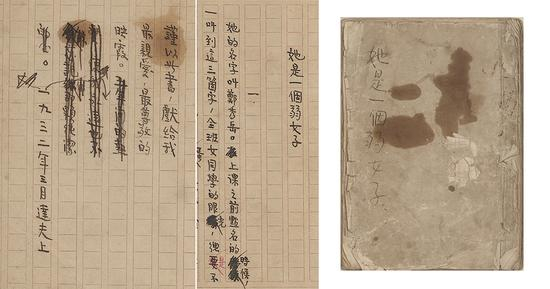 謹以此書,獻給我
最親愛,最尊敬的
映霞。
一九三二年三月達夫上
她是一個弱女子
一
她的名字叫鄭秀岳。上課之前點名的時候,
一听到這三個字,全班女同學的眼光,總要不
她是一個弱女子